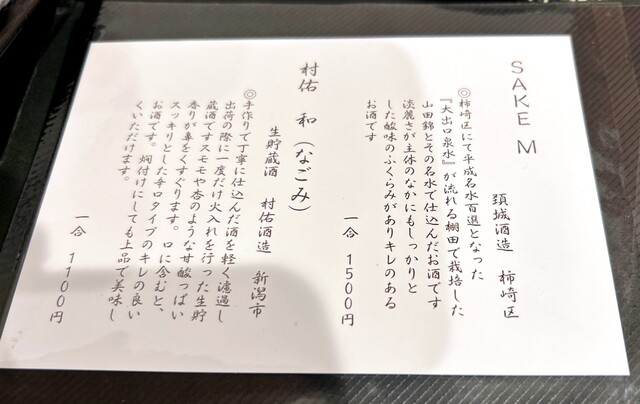 SAKE M
頚城酒造 柿崎区
◎柿崎区にて平成名水百選となった
『大出口泉水』が流れる棚田で栽培した
山田錦とその名水で仕込んだお酒です
淡麗さが主体のなかにもしっかりと
した酸味のふくらみがありキレのある
お酒です
一合 1500円
村佑 和(なごみ)
生貯蔵酒 村佑酒造 新潟市
◎手作りで丁寧に仕込んだ酒を軽く濾過し
出荷の際に一度だけ火入れを行った生貯
蔵酒ですスモモや杏のような甘酸っぱい
香りが鼻をくすぐります。口に含むと、
スッキリとした辛口タイプのキレの良い
お酒です。燗付けにしても上品で美味し
くいただけます。
一合 1100円